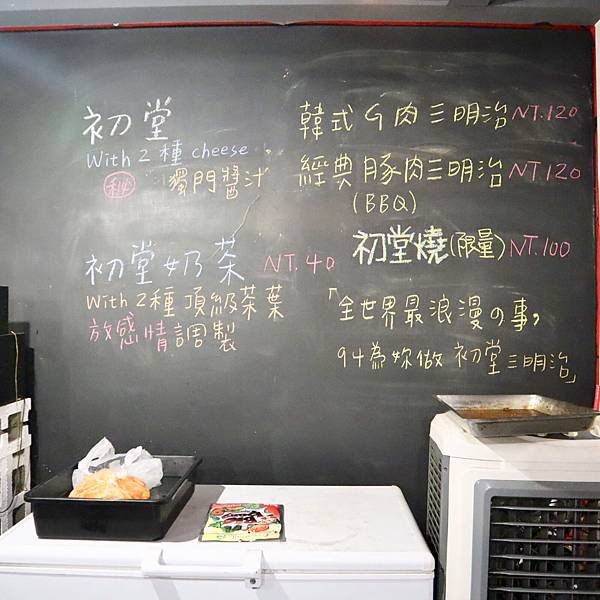 初堂
With 2 種 cheese
秘 獨門醬汁
初堂奶茶 NT.40
With 2種頂級茶葉
放感情調製
韓式牛肉三明治 NT.120
經典豚肉三明治 NT 120
(BBQ)
初堂燒(限量) NT.100
「全世界最浪漫の事,
94為妳做 初堂三明治」